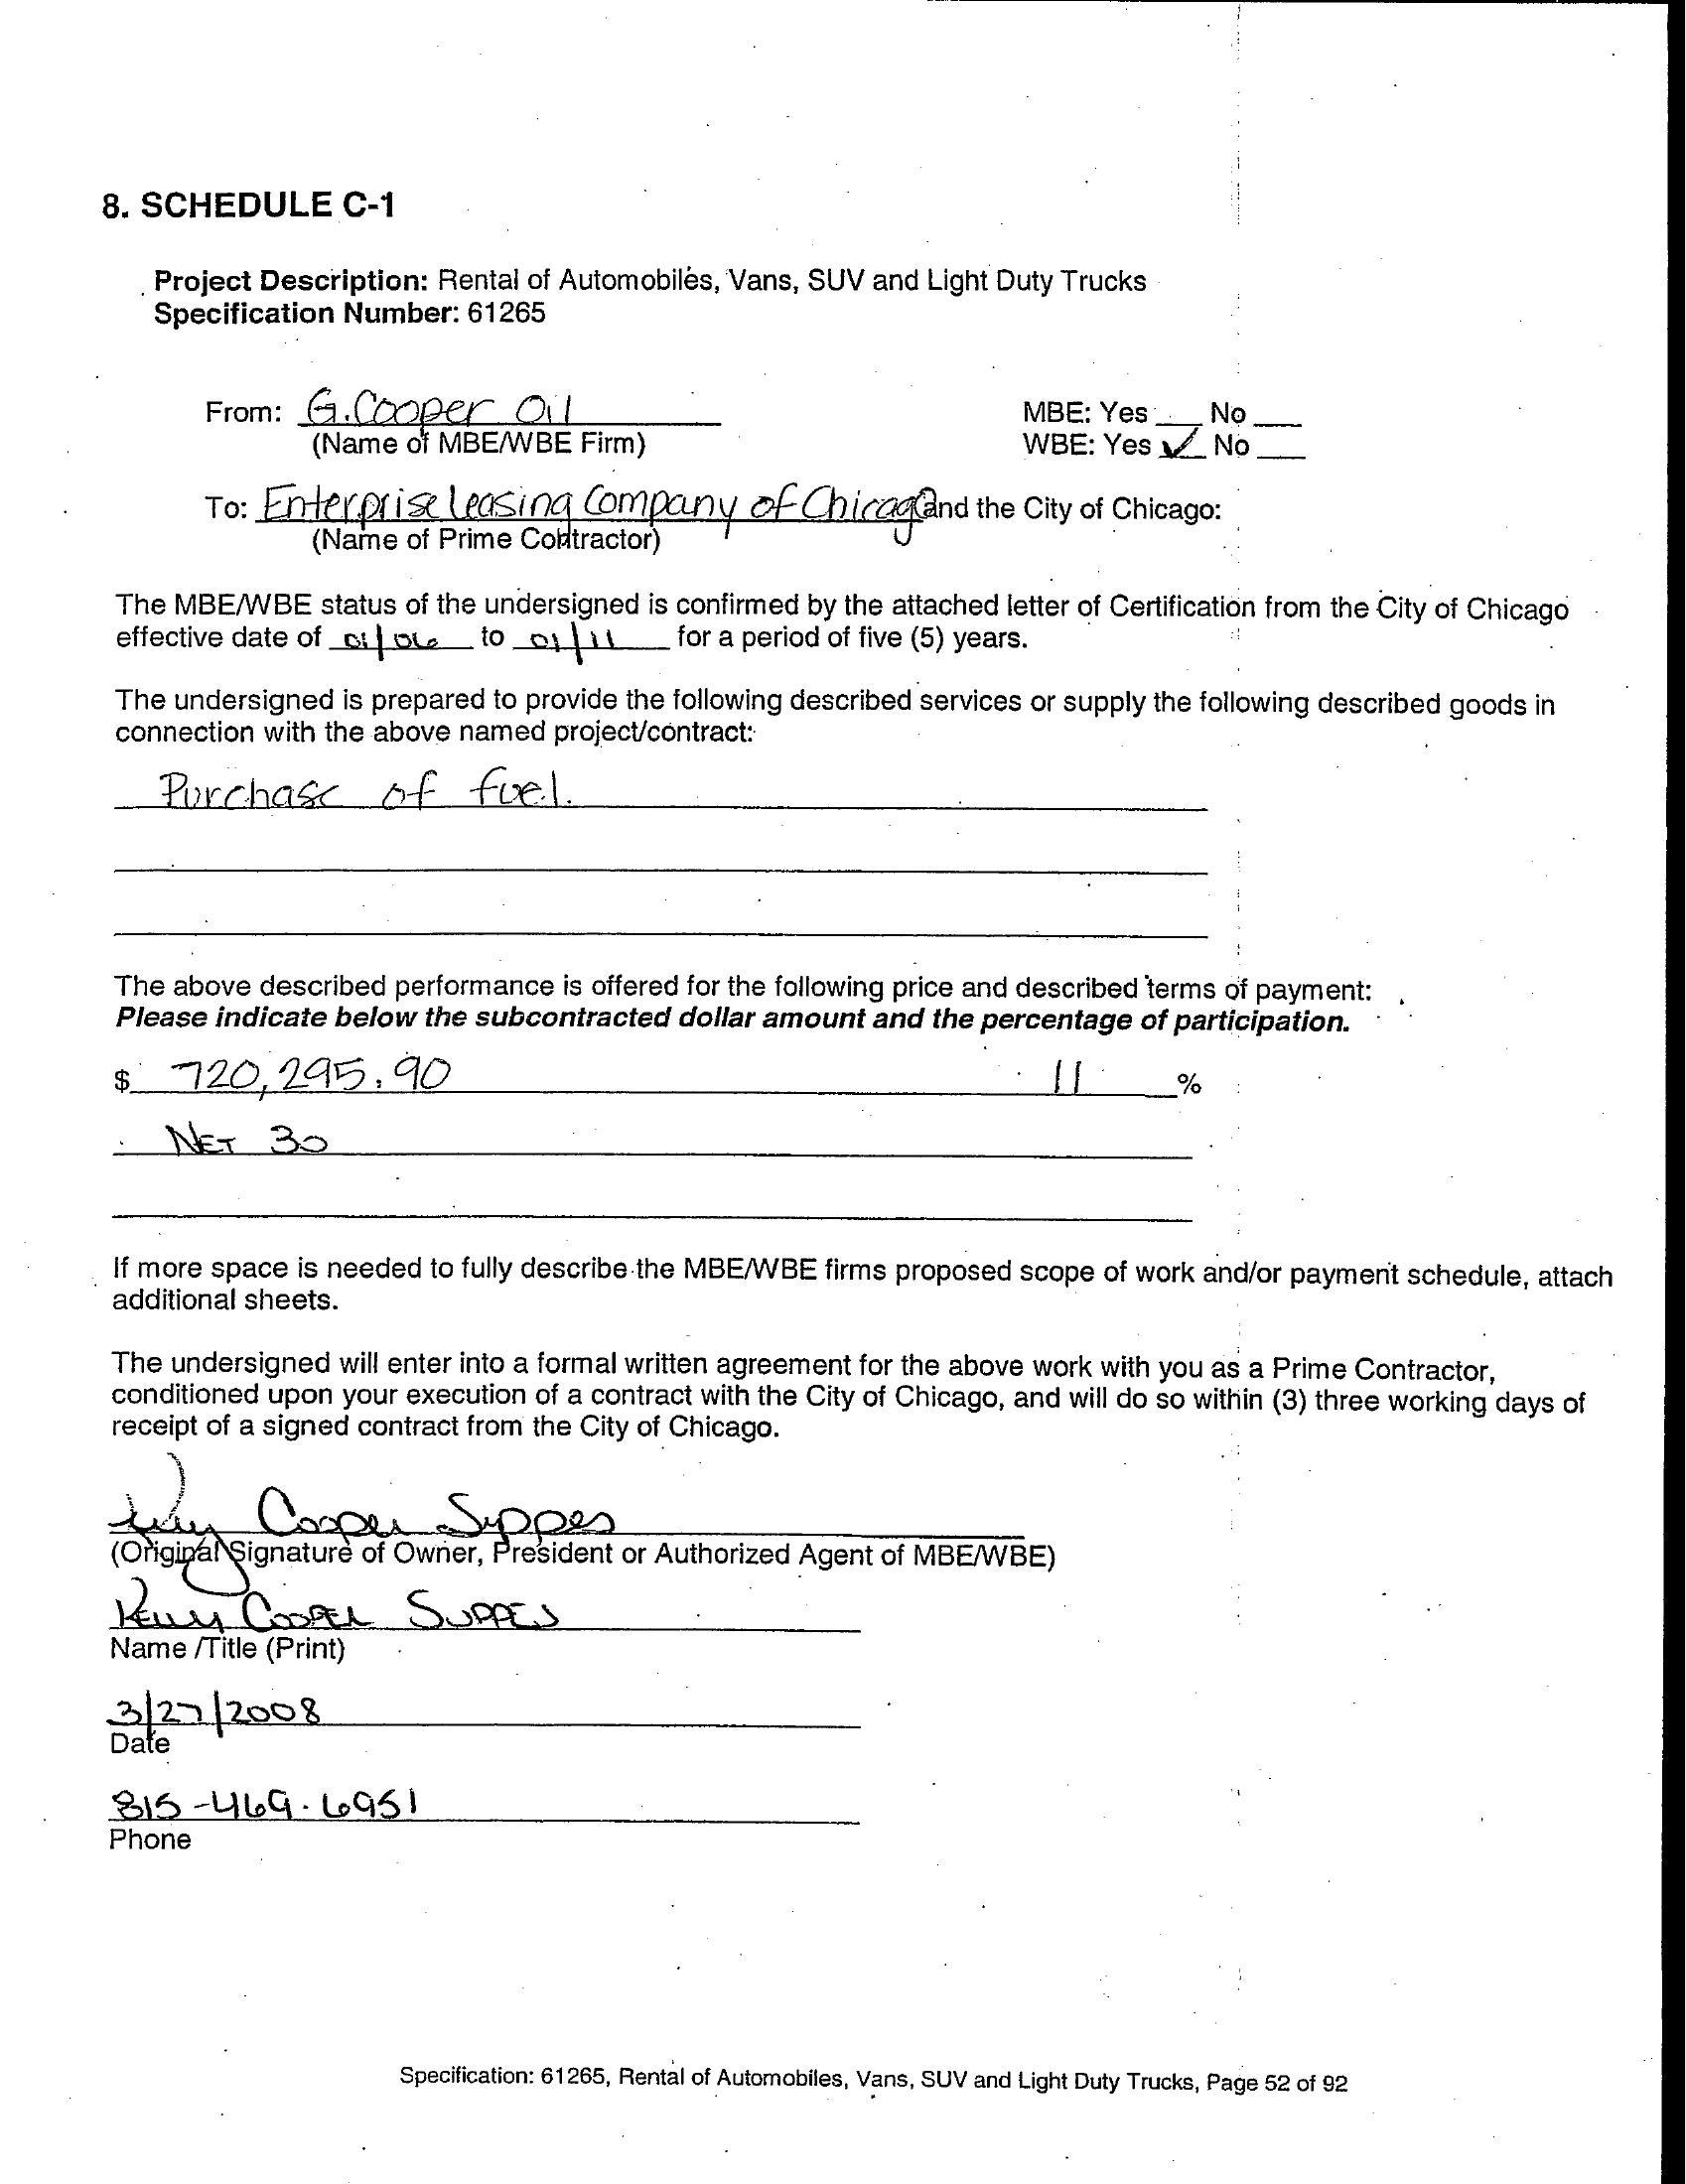 8. SCHEDULE C-1
Project Description: Rental of Automobiles, Vans, SUV and Light Duty Trucks
Specification Number: 61265
From: G. Cooper Oil MBE: Yes ___ No ___
(Name of MBE/WBE Firm) WBE: Yes ✓ No ___
To: Enterprise Leasing Company of Chicago and the City of Chicago:
(Name of Prime Contractor)
The MBE/WBE status of the undersigned is confirmed by the attached letter of Certification from the City of Chicago
effective date of 01/06 to 01/11 for a period of five (5) years.
The undersigned is prepared to provide the following described services or supply the following described goods in
connection with the above named project/contract:
Purchase of fuel.
The above described performance is offered for the following price and described terms of payment:
Please indicate below the subcontracted dollar amount and the percentage of participation.
$ 720,295.90 11 %
NET 30
If more space is needed to fully describe the MBE/WBE firms proposed scope of work and/or payment schedule, attach
additional sheets.
The undersigned will enter into a formal written agreement for the above work with you as a Prime Contractor,
conditioned upon your execution of a contract with the City of Chicago, and will do so within (3) three working days of
receipt of a signed contract from the City of Chicago.
Kelly Cooper Suppes
(Original Signature of Owner, President or Authorized Agent of MBE/WBE)
Kelly Cooper Suppes
Name /Title (Print)
3/27/2008
Date
815-469-6951
Phone
Specification: 61265, Rental of Automobiles, Vans, SUV and Light Duty Trucks, Page 52 of 92